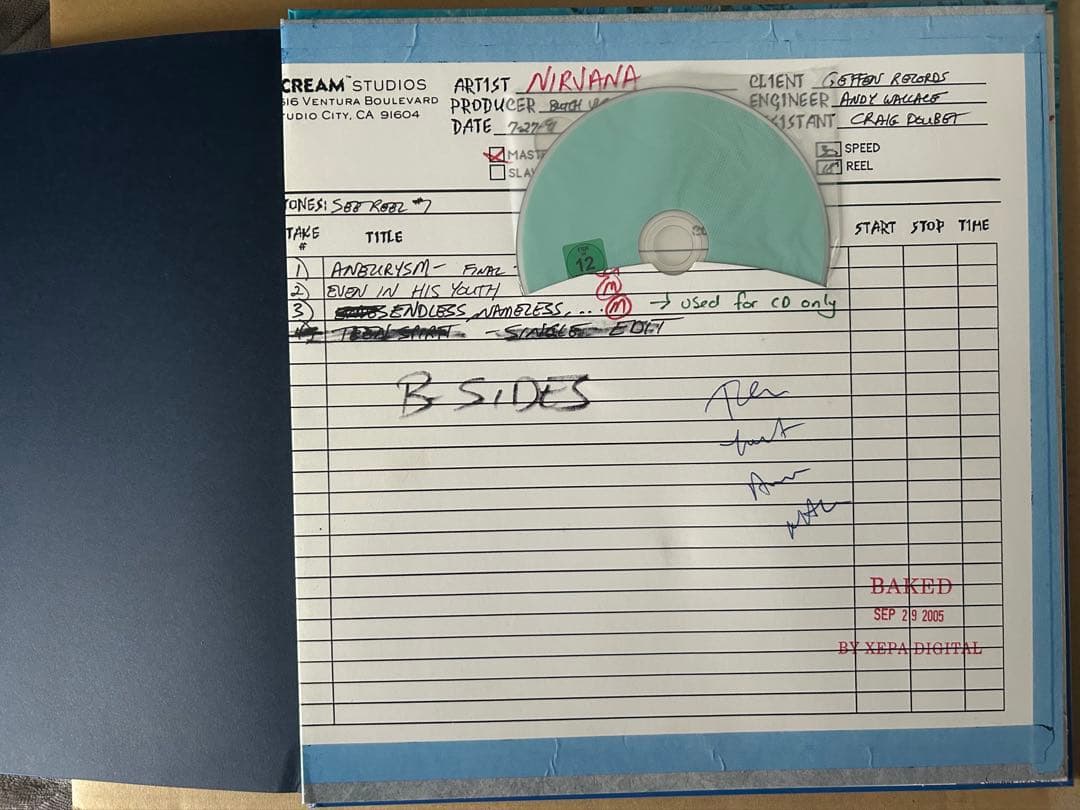 CREAM™ STUDIOS
616 VENTURA BOULEVARD
UDIO CITY, CA 91604
ARTIST NIRVANA
PRODUCER BUTCH
DATE 7-27-91
MAST
SLA
CLIENT GEFFEN RECORDS
ENGINEER ANDY WALLACE
SISTANT CRAIG DOUBET
SPEED
REEL
TONES: SEE REEL #1
TAKE # TITLE START STOP TIME
1) ANEURYSM - FINAL
2) EVEN IN HIS YOUTH M
3) ENDLESS, NAMELESS, ... M → used for CD only
TEEN SPIRIT - SINGLE EDIT
B SIDES
12
BAKED
SEP 29 2005
BY XEPA DIGITAL